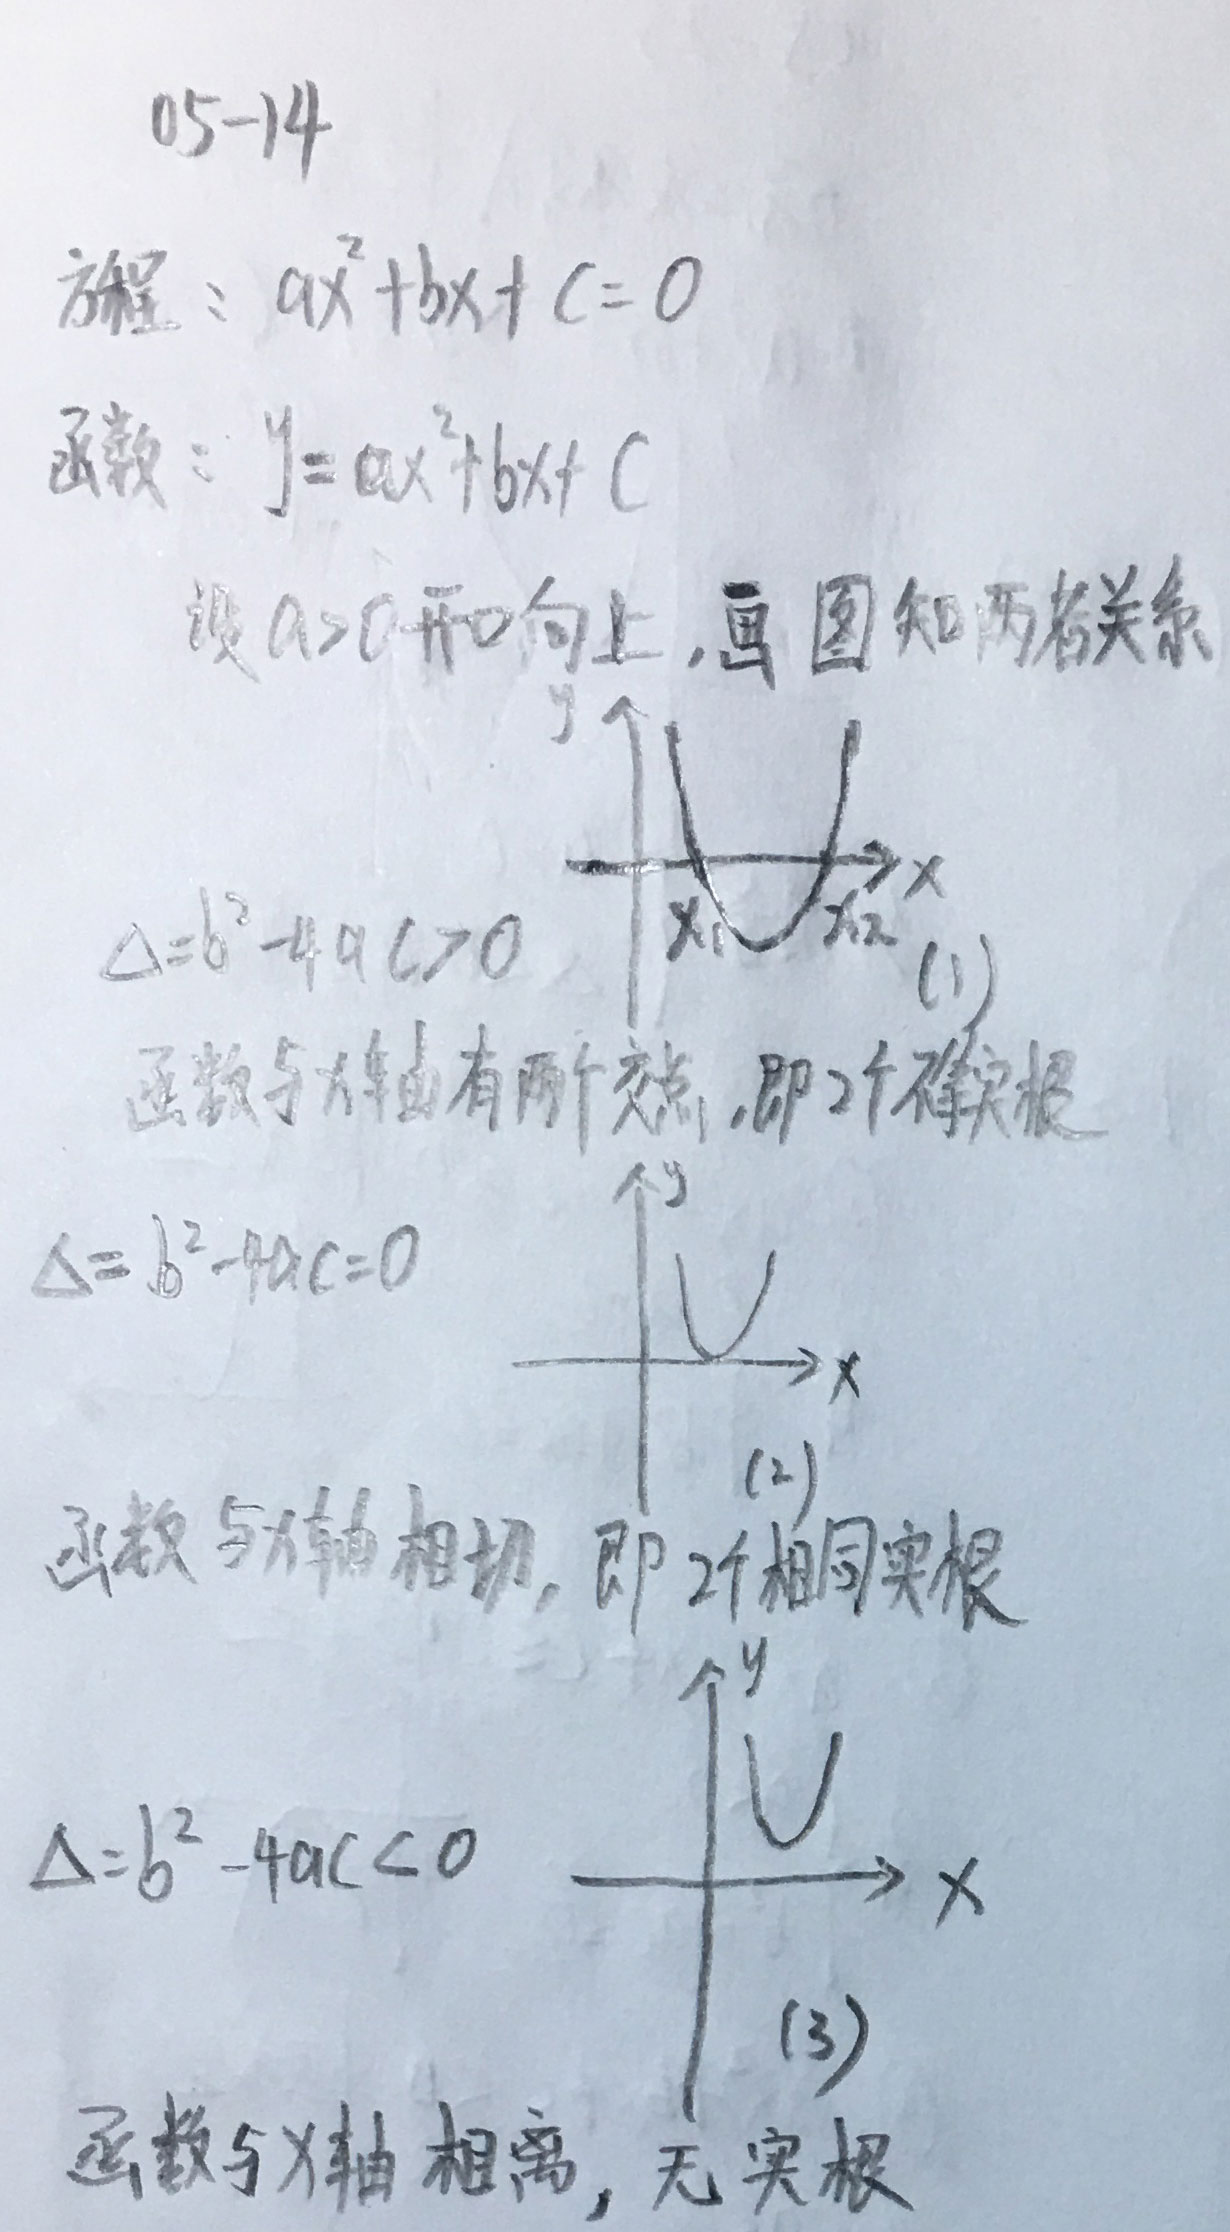 05-14
方程：ax²+bx+c=0
函数：y=ax²+bx+c
设a>0开口向上，画图知两者关系
y
x
x₁ x₂
Δ=b²-4ac>0
(1)
函数与x轴有两个交点，即2个不等实根
y
Δ=b²-4ac=0
x
(2)
函数与x轴相切，即2个相同实根
y
Δ=b²-4ac<0
x
(3)
函数与x轴相离，无实根